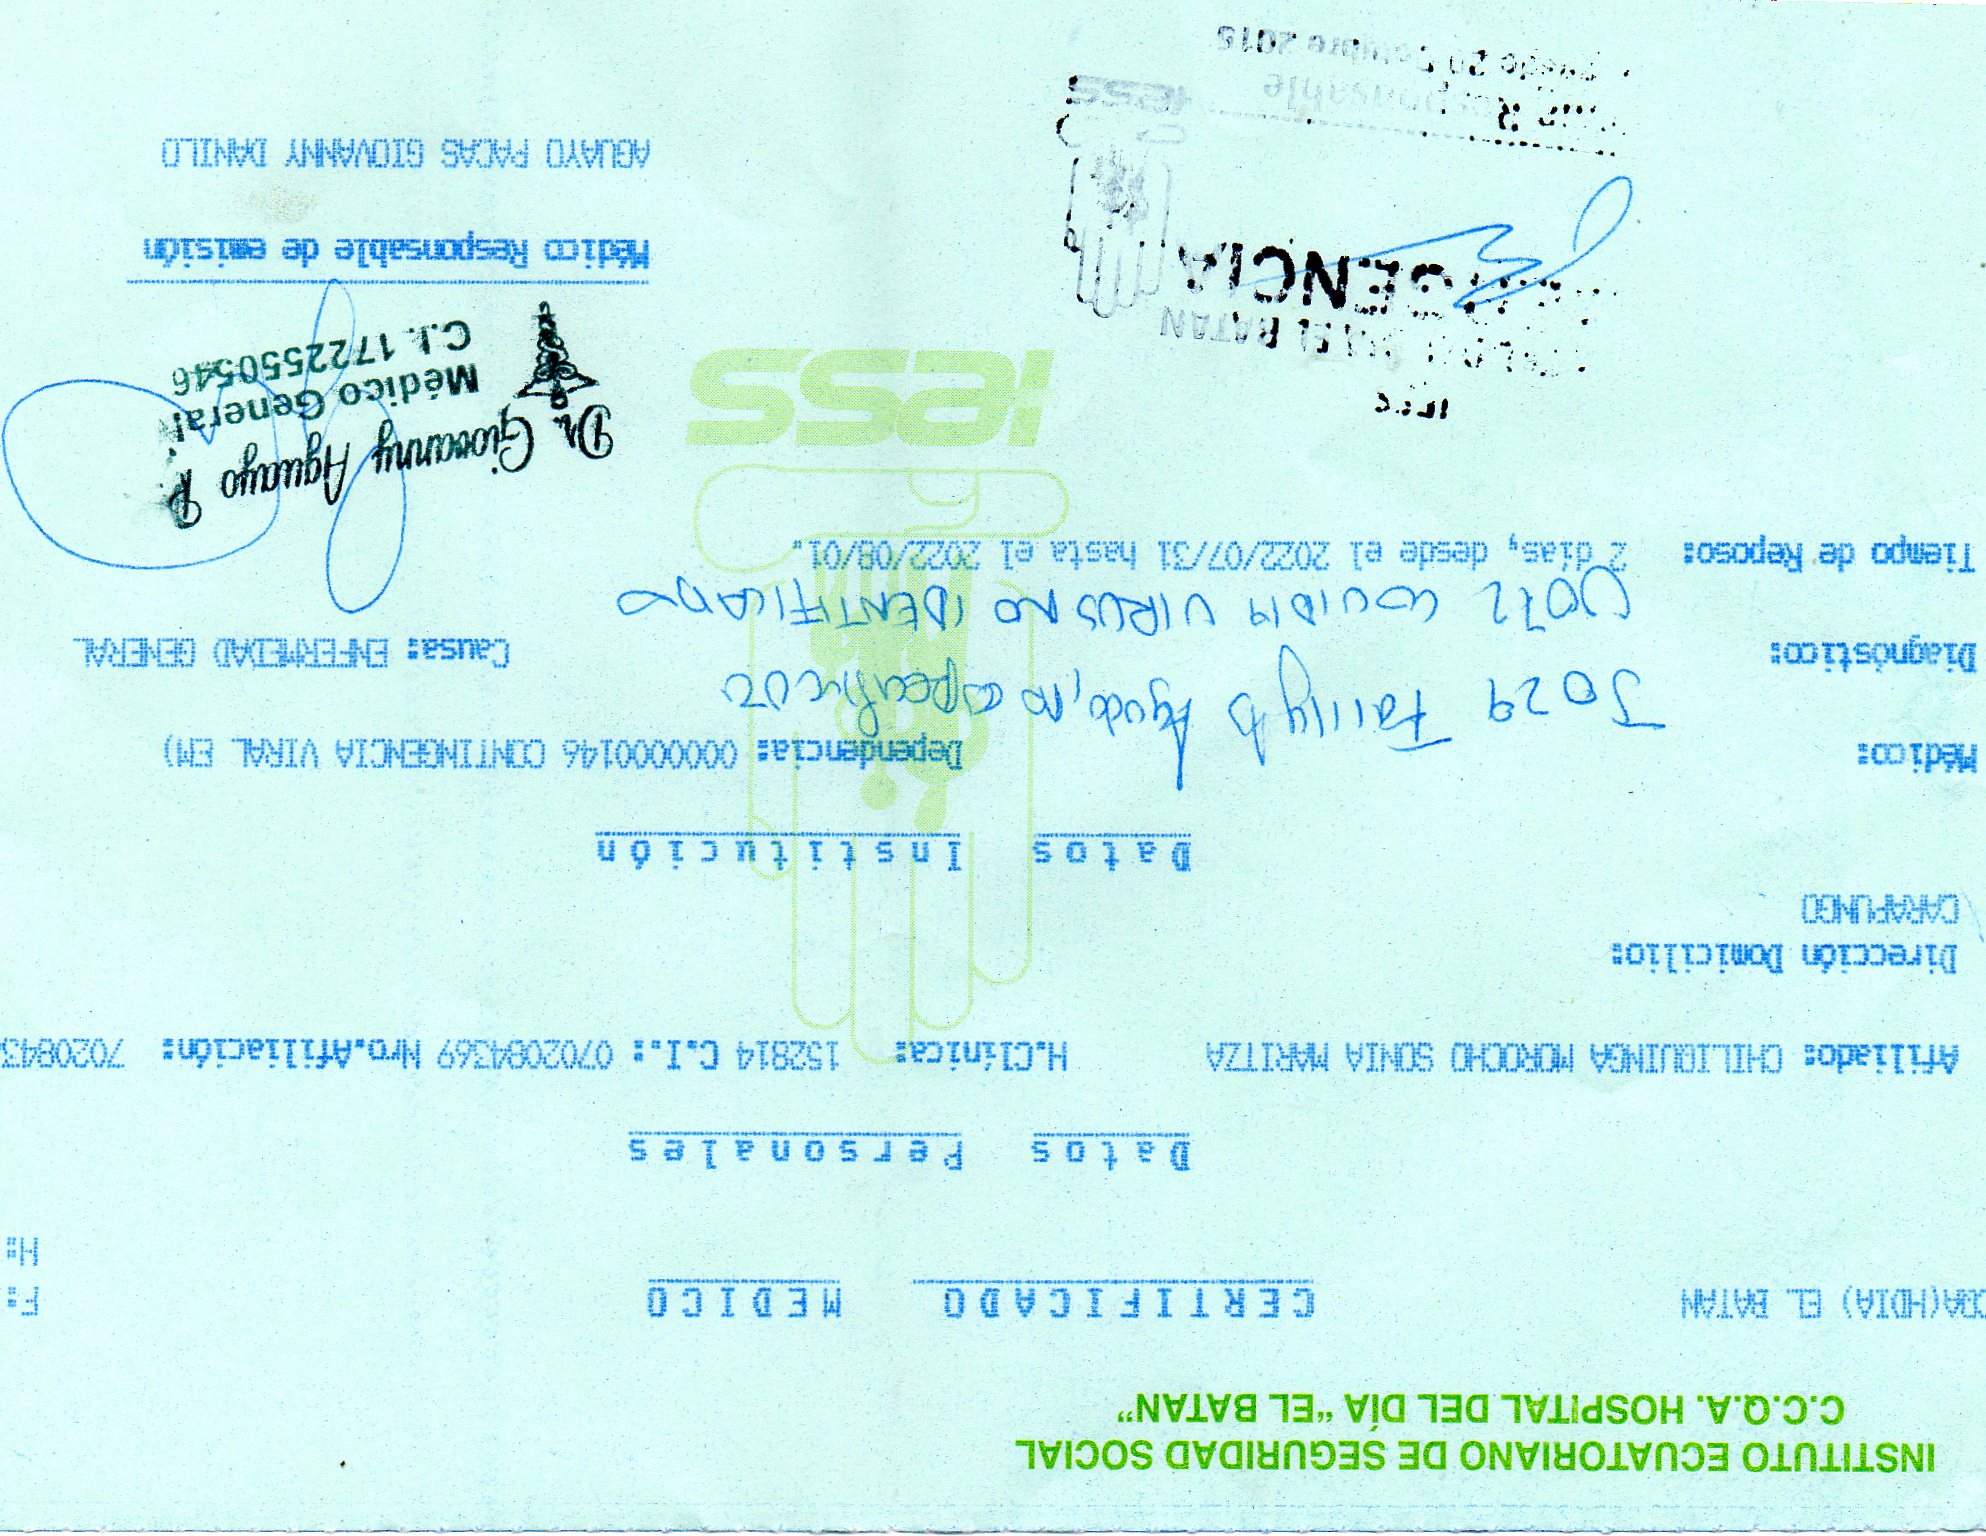 INSTITUTO ECUATORIANO DE SEGURIDAD SOCIAL
C.C.Q.A. HOSPITAL DEL DÍA “EL BATAN”
CQA(HDIA) EL BATAN CERTIFICADO MEDICO F:
H:
Datos Personales
Afiliado: CHILIQUINGA MOROCHO SONIA MARITZA H.Clínica: 152814 C.I.: 0702084369 Nro.Afiliación: 7020843
Dirección Domicilio:
CARAPUNGO
Datos Institución
Médico: Dependencia: 0000000146 CONTINGENCIA VIRAL EM)
J029 Faringitis Aguda, no especificada
Diagnóstico: Causa: ENFERMEDAD GENERAL
U072 COVID19 VIRUS NO IDENTIFICADO
Tiempo de Reposo: 2 días, desde el 2022/07/31 hasta el 2022/08/01.
iess
Dr. Giovanny Aguayo P.
Médico General
C.I. 1722550546
IESS
EL BATAN
Médico Responsable de emisión
AGUAYO PACAS GIOVANNY DANILO
Responsable
iess
20 Octubre 2015